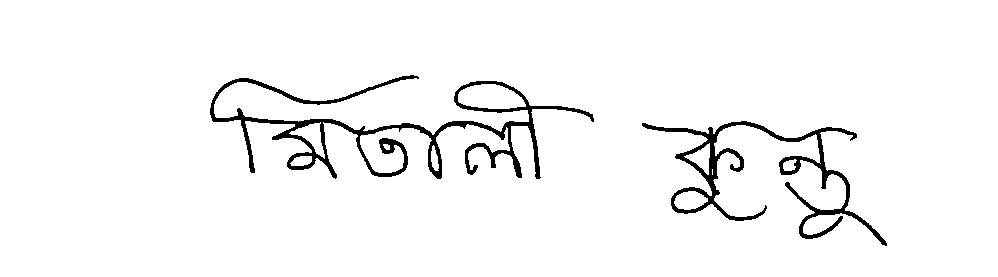 মিতালী কুন্তু